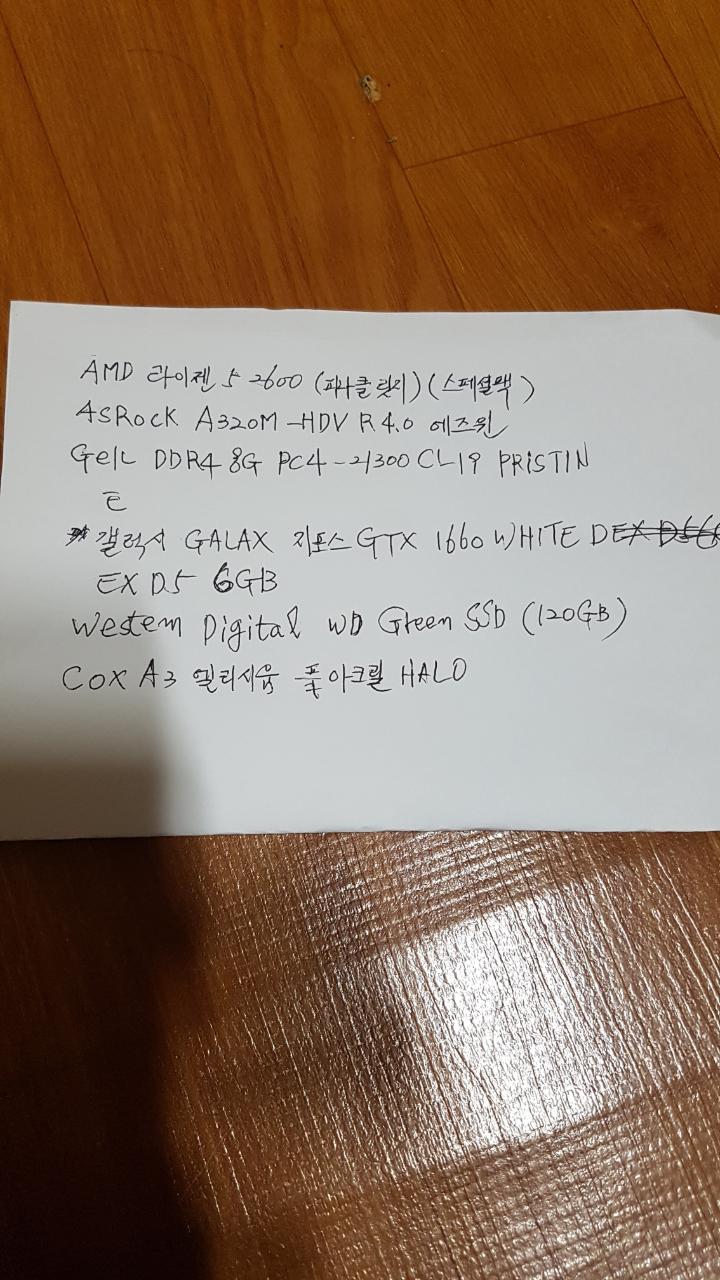 AMD 라이젠 5 2600 (피나클 릿지) (스페셜팩)
ASRock A320M-HDV R4.0 에즈윈
GeIL DDR4 8G PC4-21300 CL19 PRISTIN
E
갤럭시 GALAX 지포스 GTX 1660 WHITE D
EX D5 6GB
Western Digital WD Green SSD (120GB)
COX A3 엘리시움 풀 아크릴 HALO